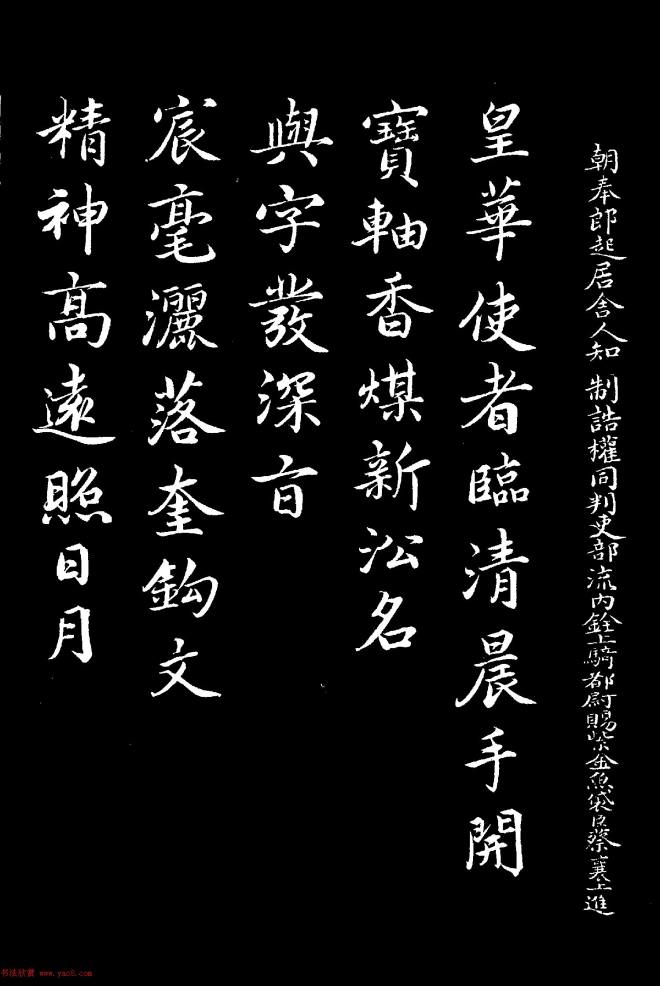 朝奉郎起居舍人知 制誥權同判吏部流內銓上騎都尉賜紫金魚袋臣蔡襄上進
皇華使者臨清晨手開
寶軸香煤新沿名
與字發深旨
宸毫灑落奎鈎文
精神高遠照日月
书法欣赏 www.yac8.com